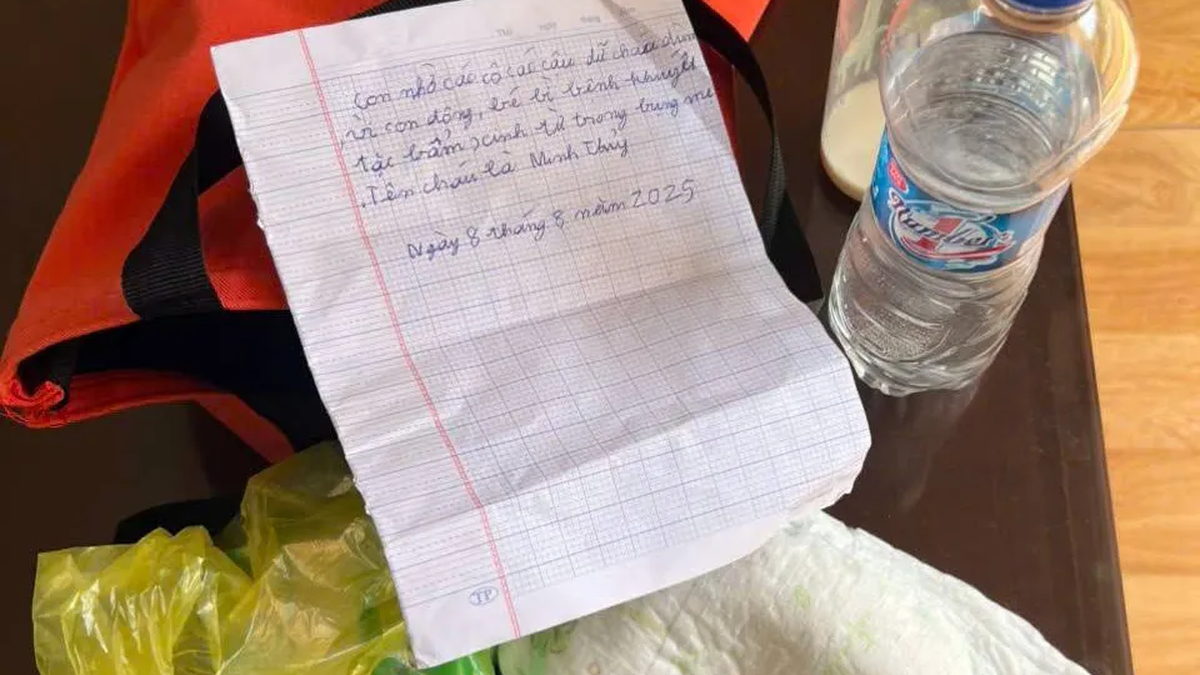 Thứ ngày tháng năm
Con nhờ các cô các cậu dữ cháu dùm
, vì con đông, bé bị bệnh khuyết
tật bẩm sinh từ trong bụng mẹ
. Tên cháu là Minh Thủy
Ngày 8 tháng 8 năm 2025
Number
1
TP